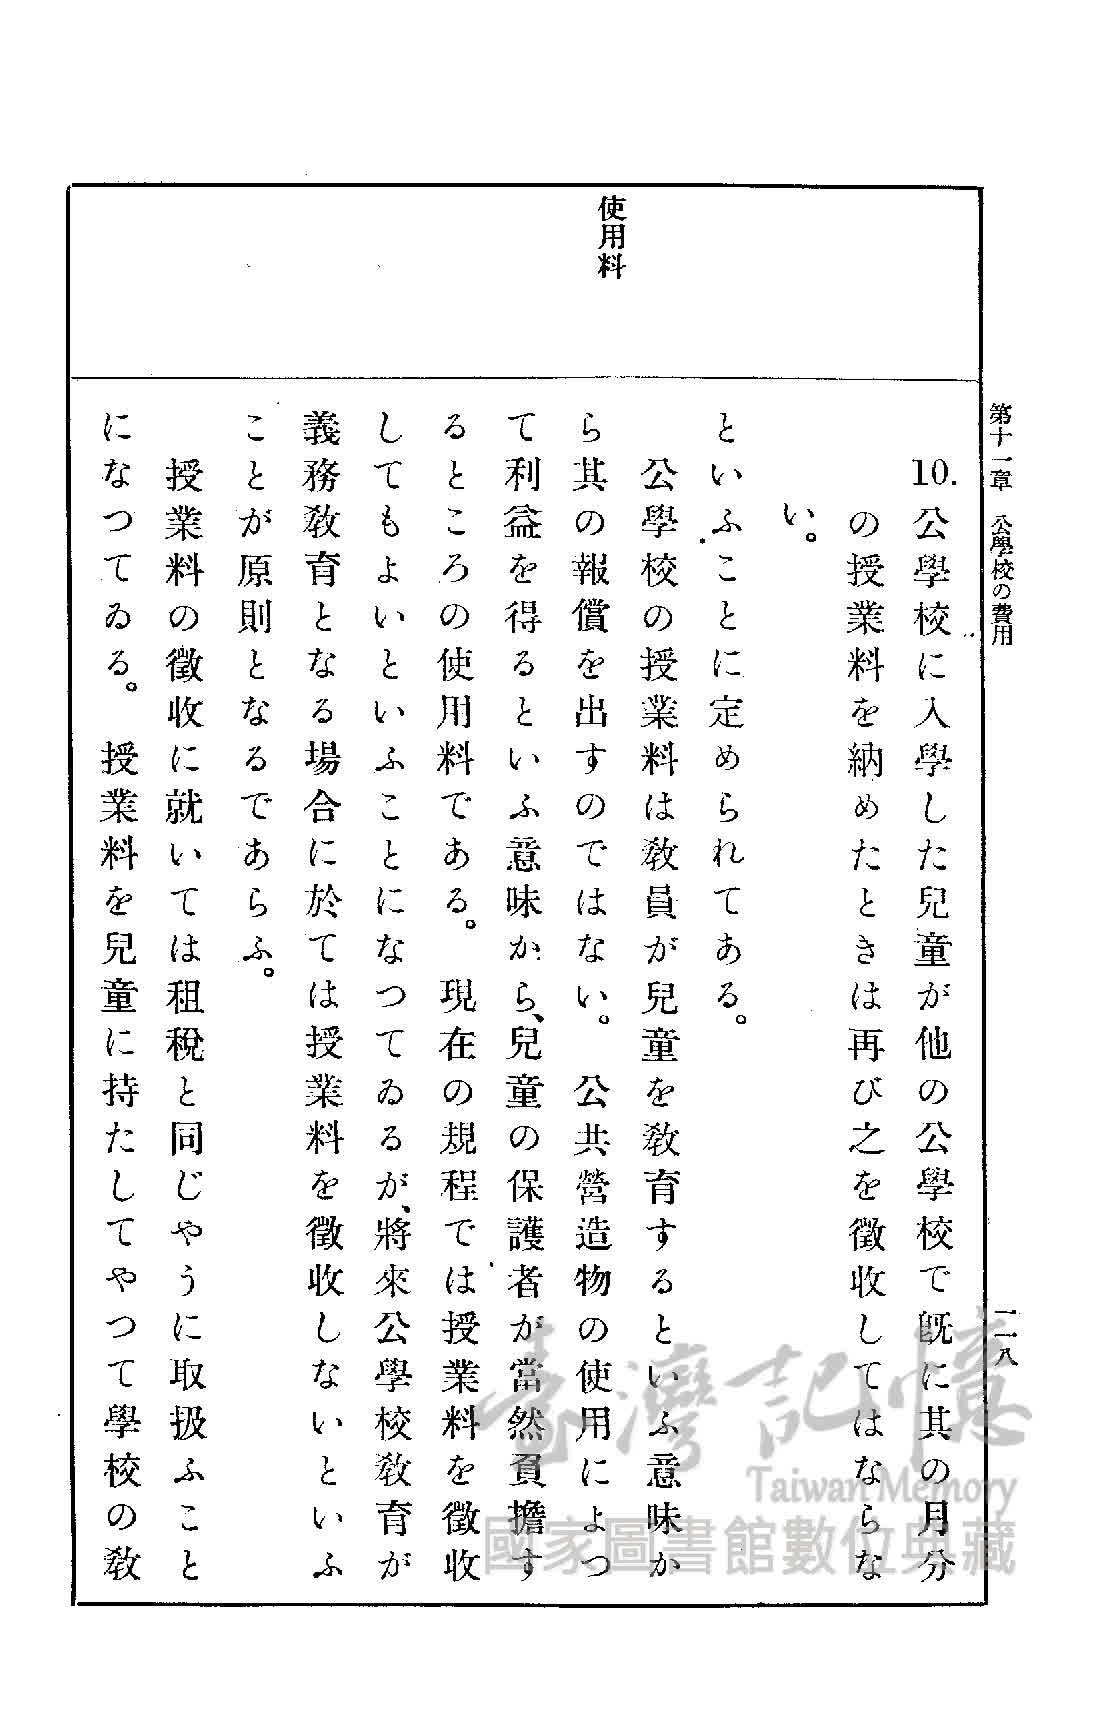 第十一章　公學校の費用
一一八
使用料
10. 公學校に入學した兒童が他の公學校で既に其の月分
の授業料を納めたときは再び之を徵收してはならな
い。
といふことに定められてある。
公學校の授業料は敎員が兒童を敎育するといふ意味か
ら其の報償を出すのではない。公共營造物の使用によつ
て利益を得るといふ意味から、兒童の保護者が當然負擔す
るところの使用料である。現在の規程では授業料を徵收
してもよいといふことになつてゐるが、將來公學校敎育が
義務敎育となる場合に於ては授業料を徵收しないといふ
ことが原則となるであらふ。
授業料の徵收に就いては租稅と同じやうに取扱ふこと
になつてゐる。授業料を兒童に持たしてやつて學校の敎
臺灣記憶
Taiwan Memory
國家圖書館數位典藏